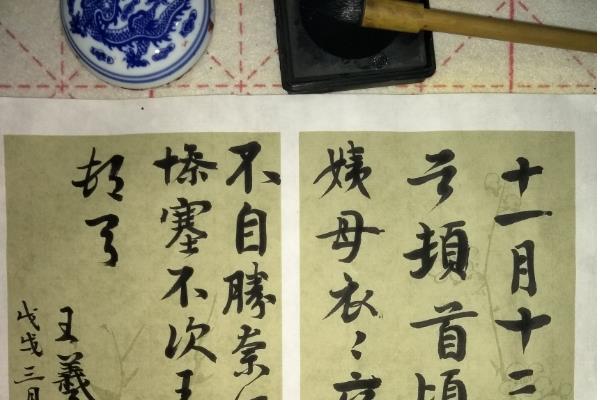 十一月十
之頓首
姨母哀〻
不自勝奈
慘塞不次王
頓首
王羲
戊戌三月